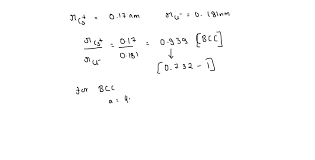 r_Cs+ = 0.17 nm   r_Cl- = 0.181nm
r_Cs+ / r_Cl- = 0.17 / 0.181 = 0.939 [BCC]
↓
[0.732 - 1]
for BCC
a =